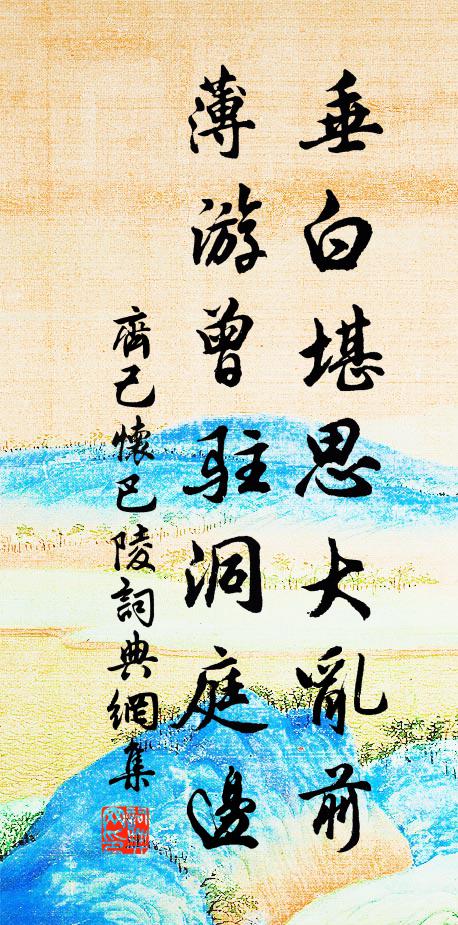 垂白堪思大亂前
薄游曾駐洞庭邊
齊己懷巴陵詞典網集